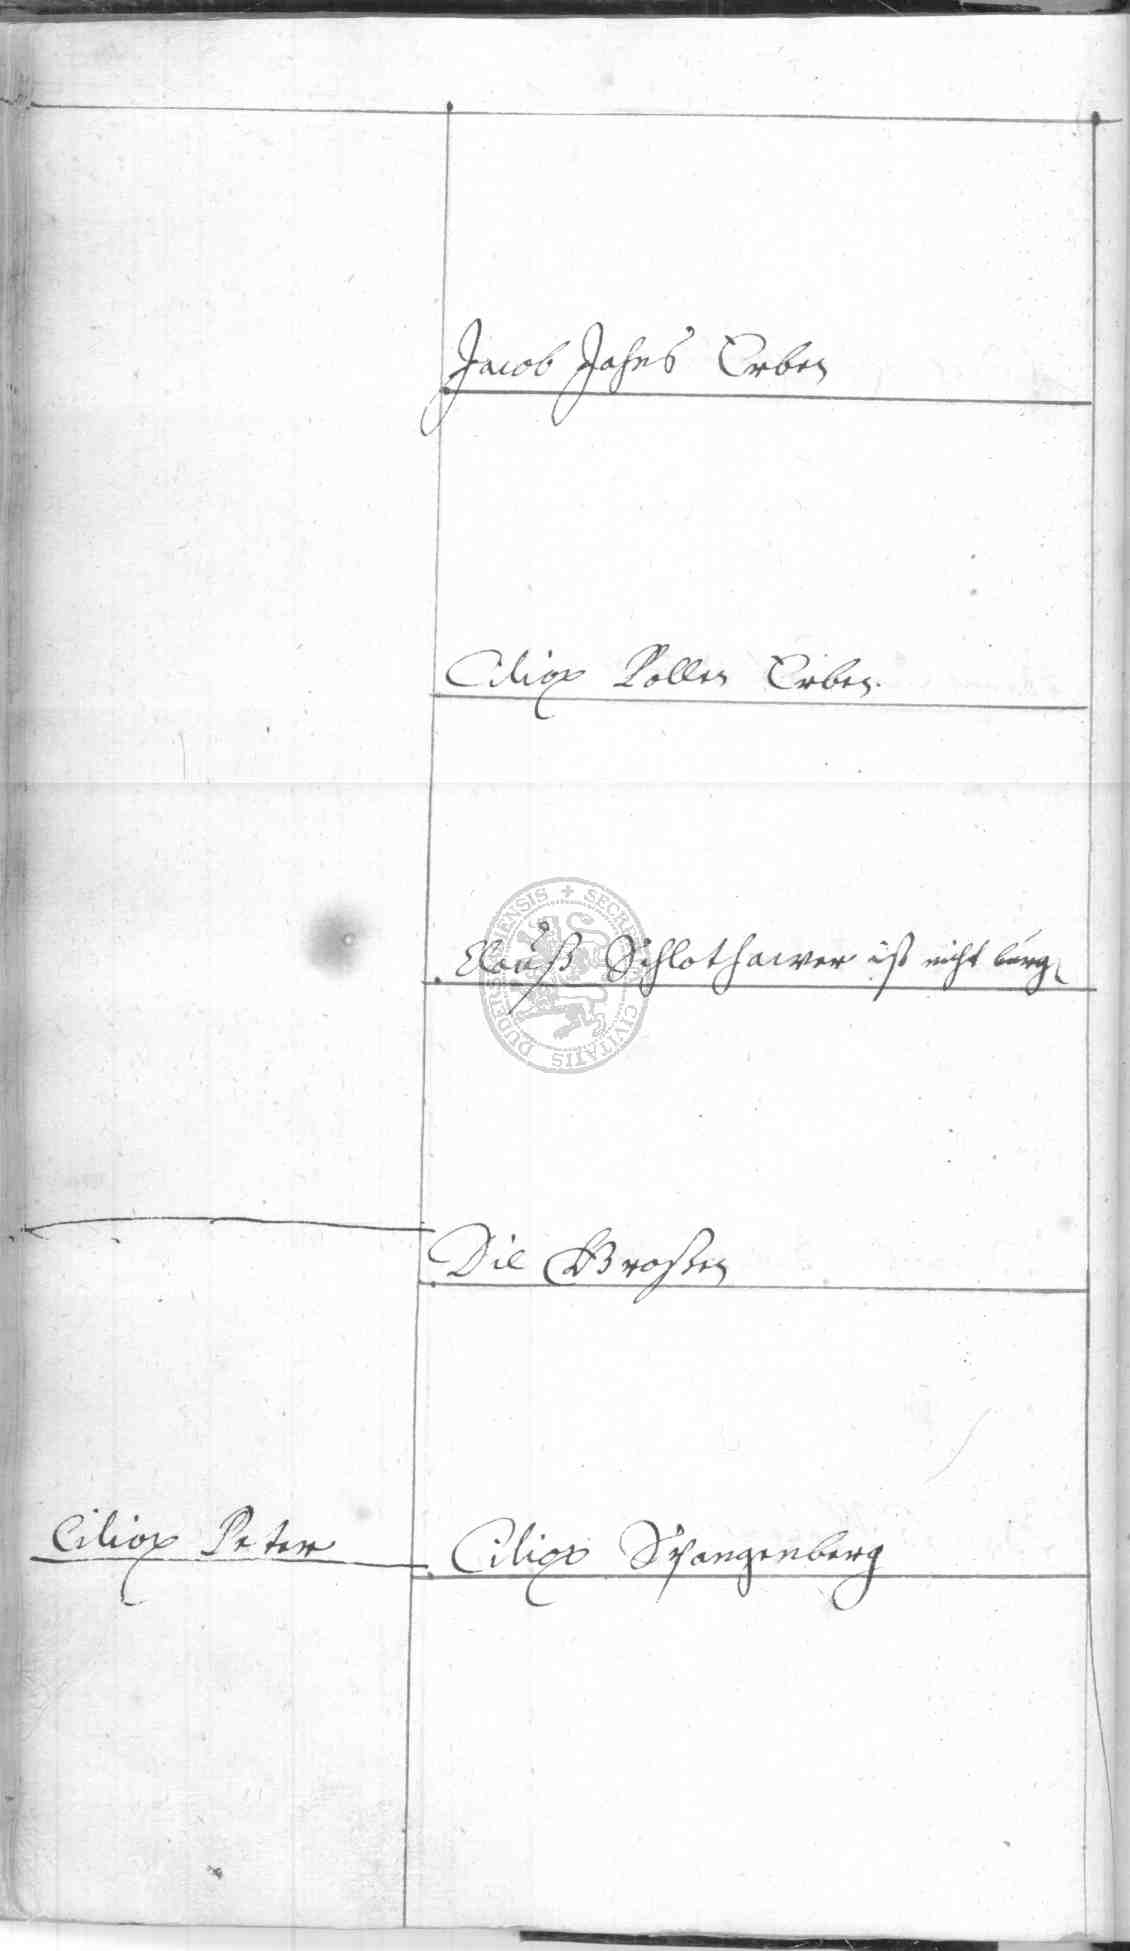 Jacob Jahns Erben
Ciliax Pollen Erben.
Clauß Schlothawer ist nicht bürg
Die Großen
Ciliax Peter
Ciliax Spangenberg
SECRE
CIVITATIS DUDERS